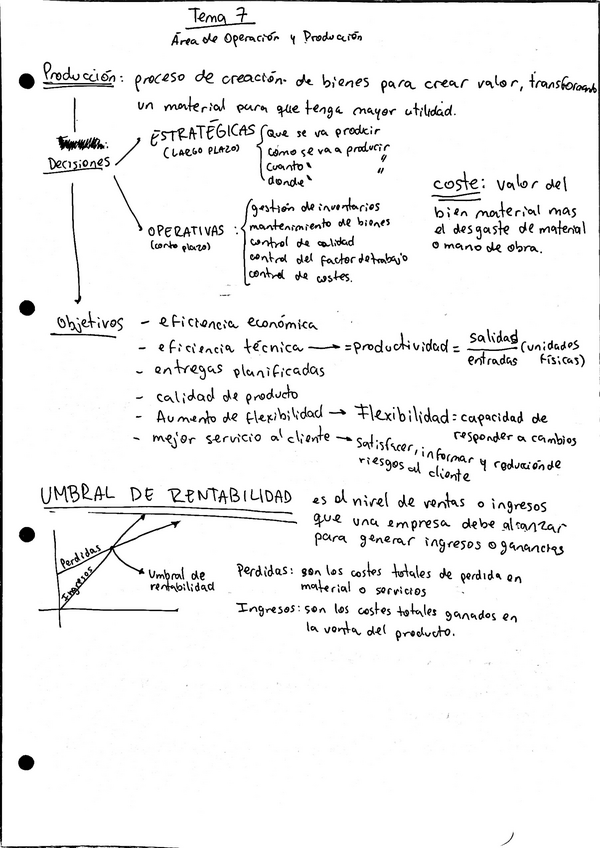 Tema 7
Área de Operación y Producción
Producción: proceso de creación de bienes para crear valor, transformando
un material para que tenga mayor utilidad.
Decisiones
ESTRATÉGICAS
(LARGO PLAZO)
que se va producir
cómo se va a producir
cuanto " "
donde " "
OPERATIVAS :
(corto plazo)
gestión de inventarios
mantenimiento de bienes
control de calidad
control del factor de trabajo
control de costes.
coste: valor del
bien material mas
el desgaste de material
o mano de obra.
Objetivos
- eficiencia económica
- eficiencia técnica → = productividad = salidas / entradas (unidades físicas)
- entregas planificadas
- calidad de producto
- Aumento de flexibilidad → Flexibilidad = capacidad de
responder a cambios
- mejor servicio al cliente → satisfacer, informar y reducción de
riesgos al cliente
UMBRAL DE RENTABILIDAD
es el nivel de ventas o ingresos
que una empresa debe alcanzar
para generar ingresos o ganancias
Perdidas
Ingresos
Umbral de
rentabilidad
Perdidas: son los costes totales de perdida en
material o servicios
Ingresos: son los costes totales ganados en
la venta del producto.